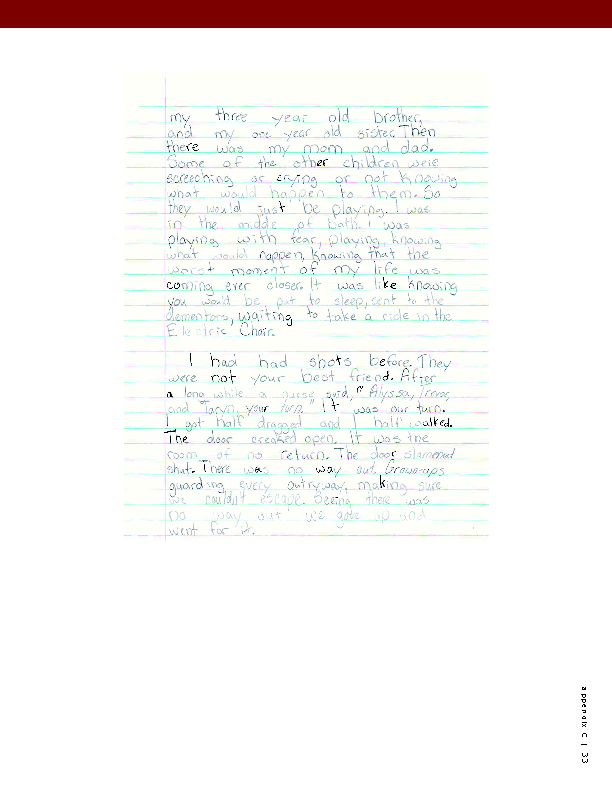 my three year old brother,
and my one year old sister. Then
there was my mom and dad.
Some of the other children were
screeching or crying or not knowing
what would happen to them. So
they would just be playing. I was
in the middle of both. I was
playing with fear, playing, knowing
what would happen, knowing that the
worst moment of my life was
coming ever closer. It was like knowing
you would be put to sleep, sent to the
dementors, waiting to take a ride in the
Electric Chair.
I had had shots before. They
were not your best friend. After
a long while a nurse said, "Alyssa, Trevor,
and Taryn, your turn." It was our turn.
I got half dragged and I half walked.
The door creaked open. It was the
room of no return. The door slammed
shut. There was no way out. Grown-ups
guarding every outryway, making sure
we couldn't escape. Seeing there was
no way out we gave up and
went for it.
appendix C | 33